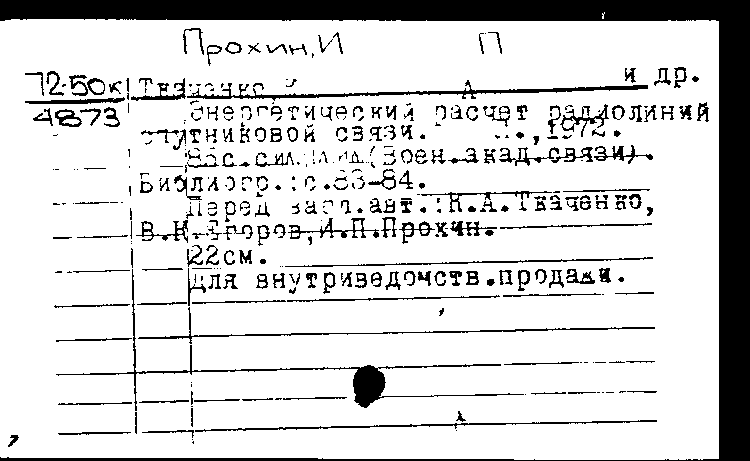 Прохин, И П
72-50к Ткаченко, К. А и др.
4873 Энергетический расчет радиолиний
спутниковой связи. Л.,1972.
85с.с (Воен.акад.связи).
Библиогр.:с.83-84.
Перед загл.авт.:К.А.Ткаченко,
В.К.Егоров,И.П.Прохин.
22см.
Для внутриведомств.продажи.